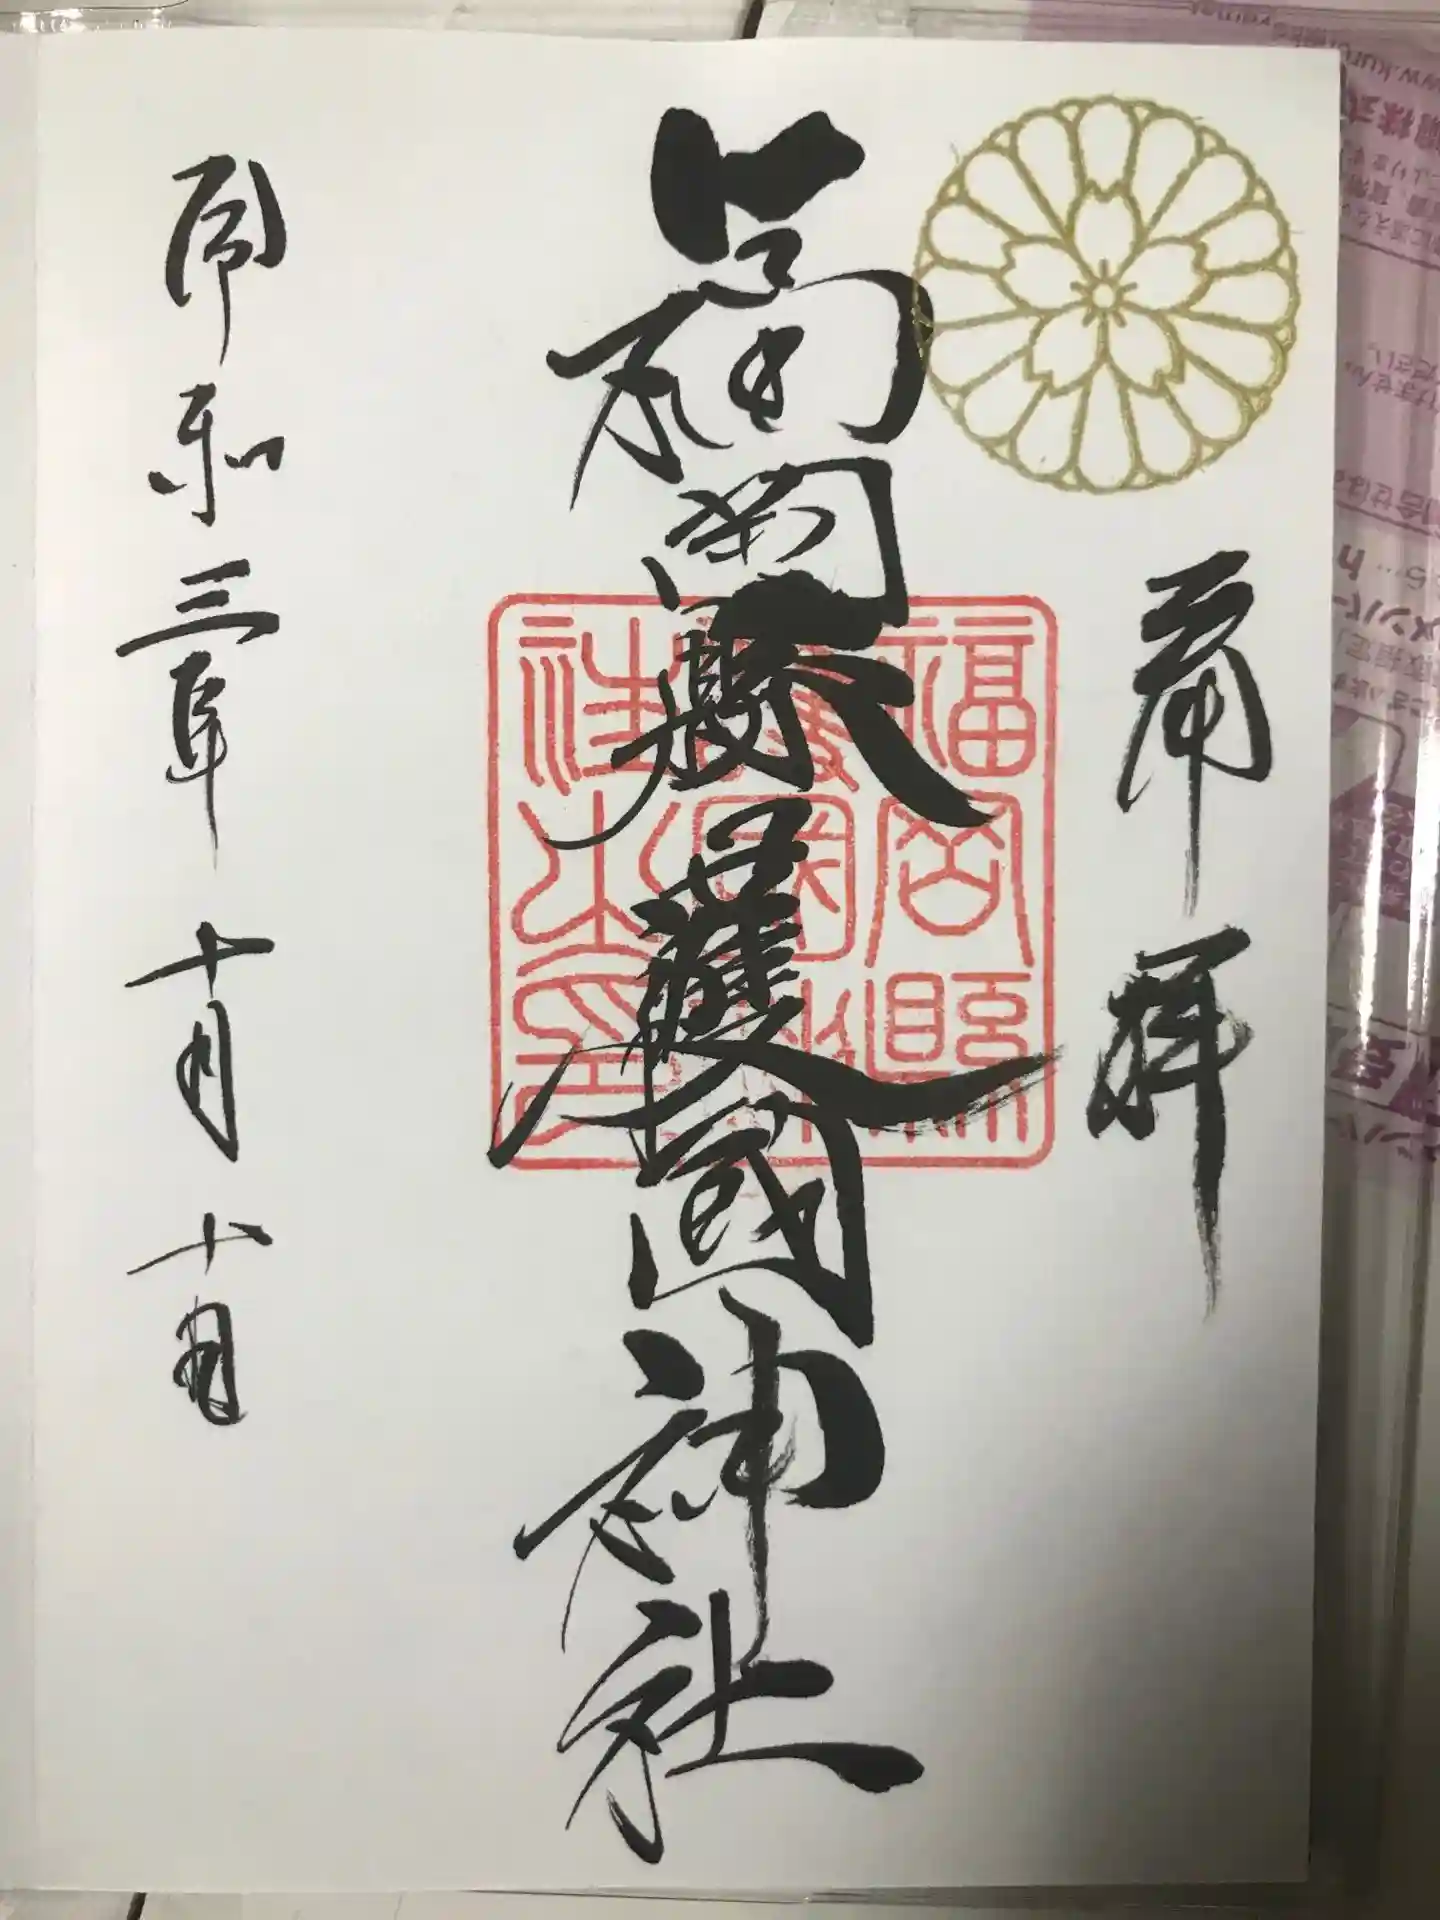 奉拝
福岡縣護國神社
福岡縣
護國神
社之印
令和三年十月十日